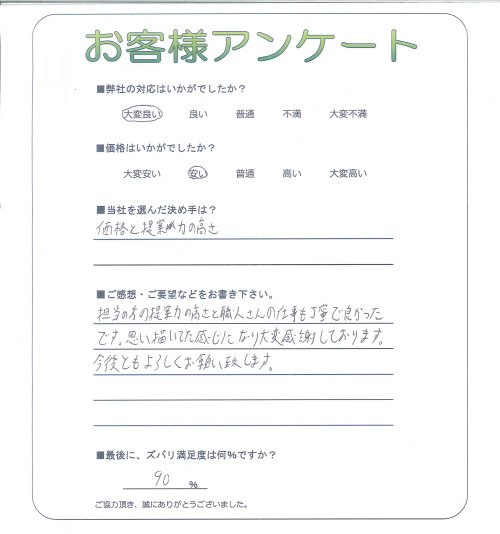 お客様アンケート
■弊社の対応はいかがでしたか？
大変良い 良い 普通 不満 大変不満
■価格はいかがでしたか？
大変安い 安い 普通 高い 大変高い
■当社を選んだ決め手は？
価格と提案力の高さ
■ご感想・ご要望などをお書き下さい。
担当の方の提案力の高さと職人さんの仕事も丁寧で良かった
です。思い描いてた感じになり大変感謝しております。
今後ともよろしくお願い致します。
■最後に、ズバリ満足度は何％ですか？
90 ％
ご協力頂き、誠にありがとうございました。